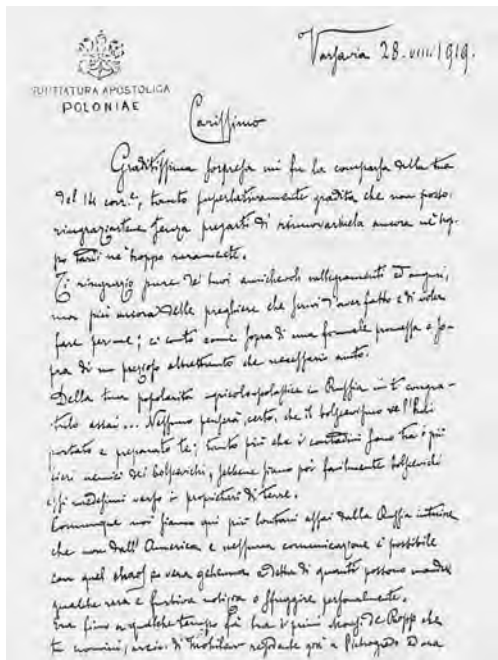 NUNTIATURA APOSTOLICA
POLONIAE
Varsavia 28.VIII.1919.
Carissimo
Graditissima sorpresa mi fu la comparsa della tua
del 14 corr.e, tanto superlativamente gradita che non posso
ringraziartene senza pregarti di rinnovarmela ancora nè trop-
po tardi nè troppo raramente.
Ti ringrazio pure dei tuoi amichevoli rallegramenti ed auguri,
ma più ancora delle preghiere che scrivi d'aver fatto e di voler
fare per me; ci conto come sopra di una formale promessa e so-
pra di un prezioso altrettanto che necessario aiuto.
Della tua popolarità agricolo-polastica in Russia mi ti congra-
tulo assai... Nessuno penserà, certo, che il bolscevismo ve l'hai
portato e preparato te; tanto più che i contadini sono tra i più
fieri nemici dei bolscevichi, sebbene siano poi facilmente bolscevichi
essi medesimi verso i proprietari di terre.
Comunque noi siamo qui più lontani assai dalla Russia
che non dall'America e nessuna comunicazione è possibile
con quel chaos e vera gehenna a detta di quanti possono mandar
qualche rara e furtiva notizia o sfuggire personalmente.
Era fino a qualche tempo fa tra i primi Mons. De Ropp che
tu nomini, arciv. di Mohilew residente già a Pietrogrado ed ora